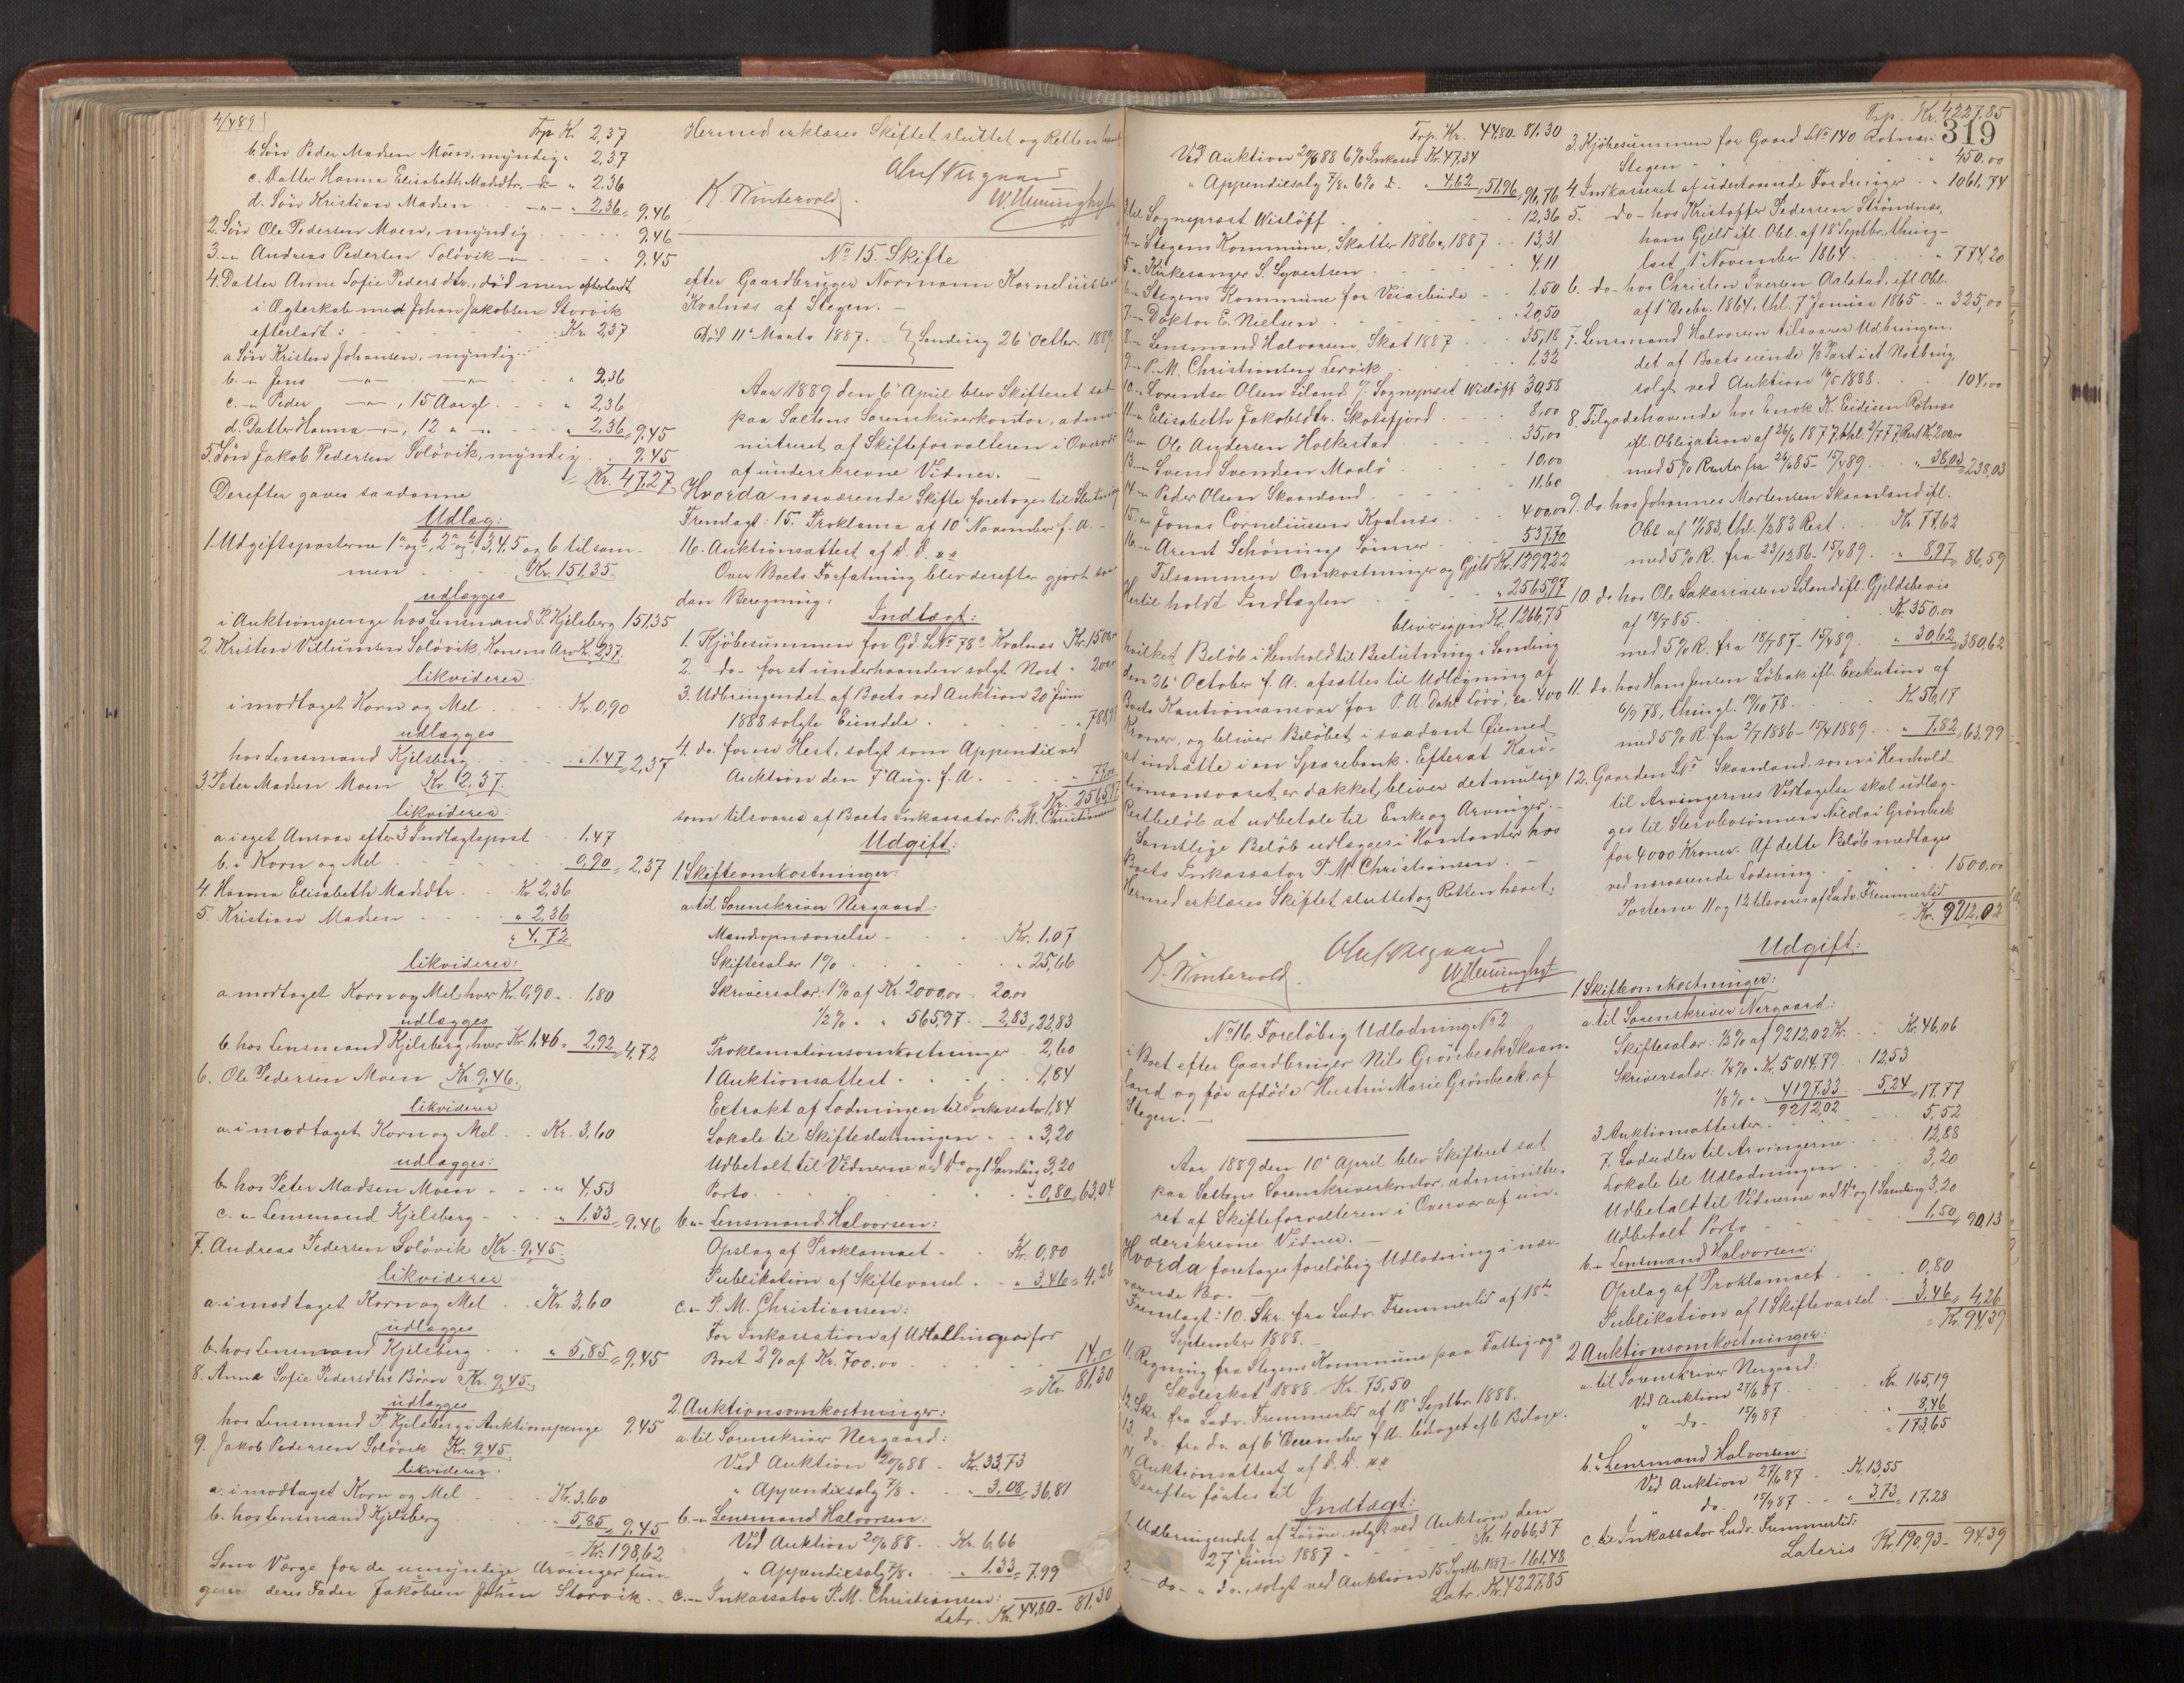 4/489
Trp. Kr. 2,37
b. Sön Peder Madsen Moen, myndig " 2,37
c. Datter Hanna Elisabeth Madsdtr. -do- " 2,36
d. Sön Kristian Madsen -"- " 2,36 = 9,46
2. Sön Ole Pedersen Moen, myndig 9,46
3. -"- Andreas Pedersen Solövik -"- 9,45
4. Datter Anne Sofie Pedersdtr., död men efterladt
i Ægteskab med Johan Jakobsen Storvik
efterladt: Kr. 2,37
a. Sön Kristen Johansen, myndig
b. -"- Jens -"- -"- " 2,36
c. -"- Peder -"-, 15 Aar gl. " 2,36
d. Datter Hanna -"-, 12 " -"- " 2,36 = 9,45
5. Sön Jakob Pedersen Solövik, myndig 9,45
= Kr. 47,27
Derefter gaves saadanne
Udlæg:
1. Udgiftsposterne 1 a og b, 2 a og b, 3, 4, 5 og 6 tilsam-
men Kr. 151,35.
udlægges
i Auktionspenge hos Lensmand P. Kjelsberg 151,35
2. Kristen Villumsen Solövik, Konens Arv Kr. 2,37.
likviderer
i modtaget Korn og Mel Kr. 0,90
udlægges
hos Lensmand Kjelsberg " 1,47 = 2,37
3. Peter Madsen Moen Kr. 2,37.
likviderer:
a. i eget Ansvar efter 3 Indtægtspost 1,47
b. i Korn og Mel 0,90 = 2,37
4. Hanna Elisabeth Madsdtr. Kr. 2,36
5. Kristian Madsen " 2,36
" 4,72
likviderer:
a. modtaget Korn og Mel, hver Kr. 0,90 = 1,80
udlægges
b. hos Lensmand Kjelsberg, hver Kr. 1,46 = 2,92 = 4,72
6. Ole Pedersen Moen Kr. 9,46.
likviderer
a. i modtaget Korn og Mel Kr. 3,60
udlægges:
b. hos Peter Madsen Moen " 4,53
c. -"- Lensmand Kjelsberg " 1,33 = 9,46
7. Andreas Pedersen Solövik Kr. 9,45.
likviderer
a. i modtaget Korn og Mel Kr. 3,60
udlægges
b. hos Lensmand Kjelsberg " 5,85 = 9,45
8. Anna Sofie Pedersdtrs Börn Kr. 9,45.
udlægges
hos Lensmand P. Kjelsberg i Auktionspenge 9,45
9. Jakob Pedersen Solövik Kr. 9,45.
likviderer.
a. i modtaget Korn og Mel Kr. 3,60
b. hos Lensmand Kjelsberg 5,85 = 9,45
= Kr. 198,62
Som Værge for de umyndige Arvinger fun-
gerer deres Fader Jakobsen Johan Storvik.
Hermed erklæres Skiftet sluttet og Retten hævet
K. Wintervold.
No 15. Skifte
efter Gaardbruger Normann Korneliussen
Kvalnæs af Stegen. -
Död 11te Marts 1887. Samling 26 Octbr. 1889.
Aar 1889 den 6te April blev Skifteret sat
paa Saltens Sorenskriverkontor, admi-
nistreret af Skifteforvalteren i Overvær
af underskrevne Vidner. -
Hvorda nærværende Skifte foretoges til Slutning
Fremlagt: 15. Proklama af 10 November f. A. -
16. Auktionsattest af d. D. **
Over Boets Forfatning blev derefter gjort saa-
dan Beregning:
Indtægt:
1. Kjöbesummen for Gd. LNo 78a Kvalnæs Kr. 1500,00
2. -do- for et underhaanden solgt Nost " 200,00
3. Udbringendet af Boets ved Auktion 20 Juni
1888 solgte Eiendele " 788,97
4. do. for en Hest, solgt som Appendix ved
Auktion den 7 Aug. f. A. " 77,00
= Kr. 2565,97
som tilsvares af Boets Inkassator P. M. Christiansen
Udgift:
1. Skifteomkostninger:
a. til Sorenskriver Nergaard:
Mandsopnævnelse Kr. 1,07
Skiftesalær 1% " 25,66
Skriversalær: 1% af Kr. 2000,00 = 20,00
1/2% " " 565,97 2,83 = 22,83
Proklamationsomkostninger 2,60
1 Auktionsattest 1,84
Extrakt af Lodningen til Inkassator 1,84
Lokale til Skifteslutningen 3,20
Udbetalt til Vidnerne ved Do og 1 Samling 3,20
Porto 0,80 = 63,04
b. -"- Lensmand Halvorsen:
Opslag af Proklamaet Kr. 0,80
Publikation af Skiftevarsel " 3,46 = 4,26
c. -"- P. M. Christiansen:
For Inkassation af Udtællinger for
Boet 2% af Kr. 700,00 14,00
= Kr. 81,30
2. Auktionsomkostninger:
a. til Sorenskriver Nergaard:
Ved Auktion 20/6 88 Kr. 33,73
" Appendixsalg 7/8 " 3,08 = 36,81
b. -"- Lensmand Halvorsen:
Ved Auktion 20/6 88 Kr. 6,66
" Appendixsalg 7/8 " 1,33 = 7,99
c. -"- Inkassator P. M. Christiansen:
Latr. Kr. 44,80 - 81,30
Trp. Kr. 44,80 - 81,30
Ved Auktion 20/6 88 6% Inkasso Kr. 47,34
" Appendixsalg 7/8 " 6% do. " 4,62 = 51,96 = 96,76
3. til Sogneprest Wislöff 12,36
4. -"- Stegens Kommune, Skatter 1886 og 1887 13,31
5. -"- Kirkesanger S. Syvertsen 4,11
6. -"- Stegens Kommune for Veiarbeide 1,50
7. -"- Doktor E. Nielsen 20,50
8. -"- Lensmand Halvorsen, Skat 1887 35,18
9. -"- P. M. Christiansen Lervik 1,32
10. -"- Lorentse Olsen Leland v/ Sogneprest Wislöff 30,58
11. -"- Elisabeth Jakobsdtr. Skotsfjord 8,00
12. -"- Ole Andersen Holkestad 35,00
13. -"- Svend Svendsen Maalö 10,00
14. -"- Peder Olsen Skaanland 11,60
15. -"- Jonas Corneliussen Kvalnæs 400,00
16. -"- Arent Schönings Sönner 537,70
Tilsammen Omkostninger og Gjeld Kr. 1299,22
Hertil holdt Indtægten " 2565,97
bliver igjen Kr. 1266,75
hvilket Belöb i Henhold til Beslutning i Samling
den 26 October f. A. afsættes til Udligning af
Boets Kautionsansvar for P. A. Dahl Lövö, ca. 400
Kroner, og bliver Belöbet i saadant Öiemed
at indsætte i en Sparebank. Efterat Kau-
tionsansvaret er dækket, bliver det mulige
Restbelöb at udbetale til Enke og Arvinger. -
Samtlige Belöb udlægges i Kontanter hos
Boets Inkassator P. M. Christiansen. -
Hermed erklæres Skiftet sluttet og Retten hævet.
K. Wintervold.
No 16. Foreløbig Udlodning No 2
i Boet efter Gaardbruger Nils Grönbeck Skaan-
land og för afdöde Hustru Marie Grönbeck, af
Stegen. -
Aar 1889 den 10 April blev Skifteret sat
paa Saltens Sorenskriverkontor, administre-
ret af Skifteforvalteren i Overvær af un-
derskrevne Vidner. -
Hvorda foretoges foreløbig Udlodning i nær-
værende Bo. -
Fremlagt: 10. Skr. fra Ludv. Fremmerlid af 18de
September 1888. -
11. Regning fra Stegens Kommune paa Fattig- og
Skoleskat 1888 Kr. 75,50
12. Skr. fra Ludv. Fremmerlid af 18 Septbr. 1888.
13. do. fra do. af 6 December f. A. ledsaget af 6 Bilage.
14. Auktionsattest af d. D. **
Derefter førtes til
Indtægt:
1. Udbringendet af Lösöre, solgt ved Auktion den
27 Juni 1887 Kr. 4066,37
2. -do- " do., solgt ved Auktion 15 Septbr. 1887 - 161,48
Latr. Kr. 4227,85
Trp. Kr. 4227,85
319
3. Kjöbesummen for Gaard LNo 140 Rotnes
Stegen " 450,00
4. Indkasseret af udestaaende Fordringer " 1061,74
5. do- hos Kristoffer Pedersen Strömsnæs,
hans Gjeld ifl. Obl. af 18 Septbr., thing-
læst 1 November 1864 " 774,20
6. do- hos Christen Iversen Aalstad, ifl. Obl.
af 1 Decbr. 1864, thl. 7 Januar 1865 " 325,00
7. Lensmand Halvorsen tilsvarer Udbringen-
det af Boets eiende 1/8 Part i et Notbrug
solgt ved Auktion 16/5 1888 104,00
8. Tilgodehavende hos Enok H. Eidisen Rotnæs
ifl. Obligation af 26/6 1877, thl. 2/7 77, Rest Kr. 200,00
med 5% Renter fra 26/6 85 - 15/4 89 " 38,03 = 238,03
9. do. hos Johannes Mortensen Skaanland ifl.
Obl. af 1/1 83, thl. 1/2 83 Rest Kr. 77,62
med 5% R. fra 23/12 86 - 15/4 89 " 8,97 = 86,59
10. do hos Ole Zakariassen Leland ifl. Gjeldsbevis
af 18/7 85 Kr. 350,00
med 5% R. fra 18/7 87 - 15/4 89 " 30,62 = 380,62
11. do. hos Hans Jensen Löbak ifl. Exekution af
6/9 78, thingl. 19/10 78 Kr. 56,17
med 5% R. fra 2/7 1886 - 15/4 1889 " 7,82 = 63,99
12. Gaarden LNo Skaanland, som i Henhold
til Arvingernes Vedtagelse skal udlæg-
ges til Stervbosönnen Nikolai Grönbeck
for 4000 Kroner. Af dette Belöb medtages
ved nærværende Lodning 1500,00
Posterne 11 og 12 tilsvares af Ludv. Fremmerlid
= Kr. 9212,02
Udgift:
1. Skifteomkostninger:
a. til Sorenskriver Nergaard:
Skiftesalær: 1/2% af 9212,02 Kr. Kr. 46,06
Skriversalær: 1/4% " Kr. 5014,79 12,53
1/8% " " 4197,33 5,24 = 17,77
9212,02
3 Auktionsattester 5,52
7 Lodsedler til Arvingerne 12,88
Lokale til Udlodningen 3,20
Udbetalt til Vidnerne ved Do og 1 Samling 3,20
Udbetalt Porto 1,50 = 90,13
b. -"- Lensmand Halvorsen:
Opslag af Proklamaet 0,80
Publikation af 1 Skiftevarsel 3,46 = 4,26
= Kr. 94,39
2. Auktionsomkostninger:
a. til Sorenskriver Nergaard:
Ved Auktion 27/6 87 Kr. 165,19
" do- 15/9 87 " 8,46
= 173,65
b. -"- Lensmand Halvorsen:
Ved Auktion 27/6 87 Kr. 13,55
" do. 15/9 87 " 3,73 = 17,28
c. til Inkassator Ludv. Fremmerlid:
Lateris Kr. 190,93 - 94,39